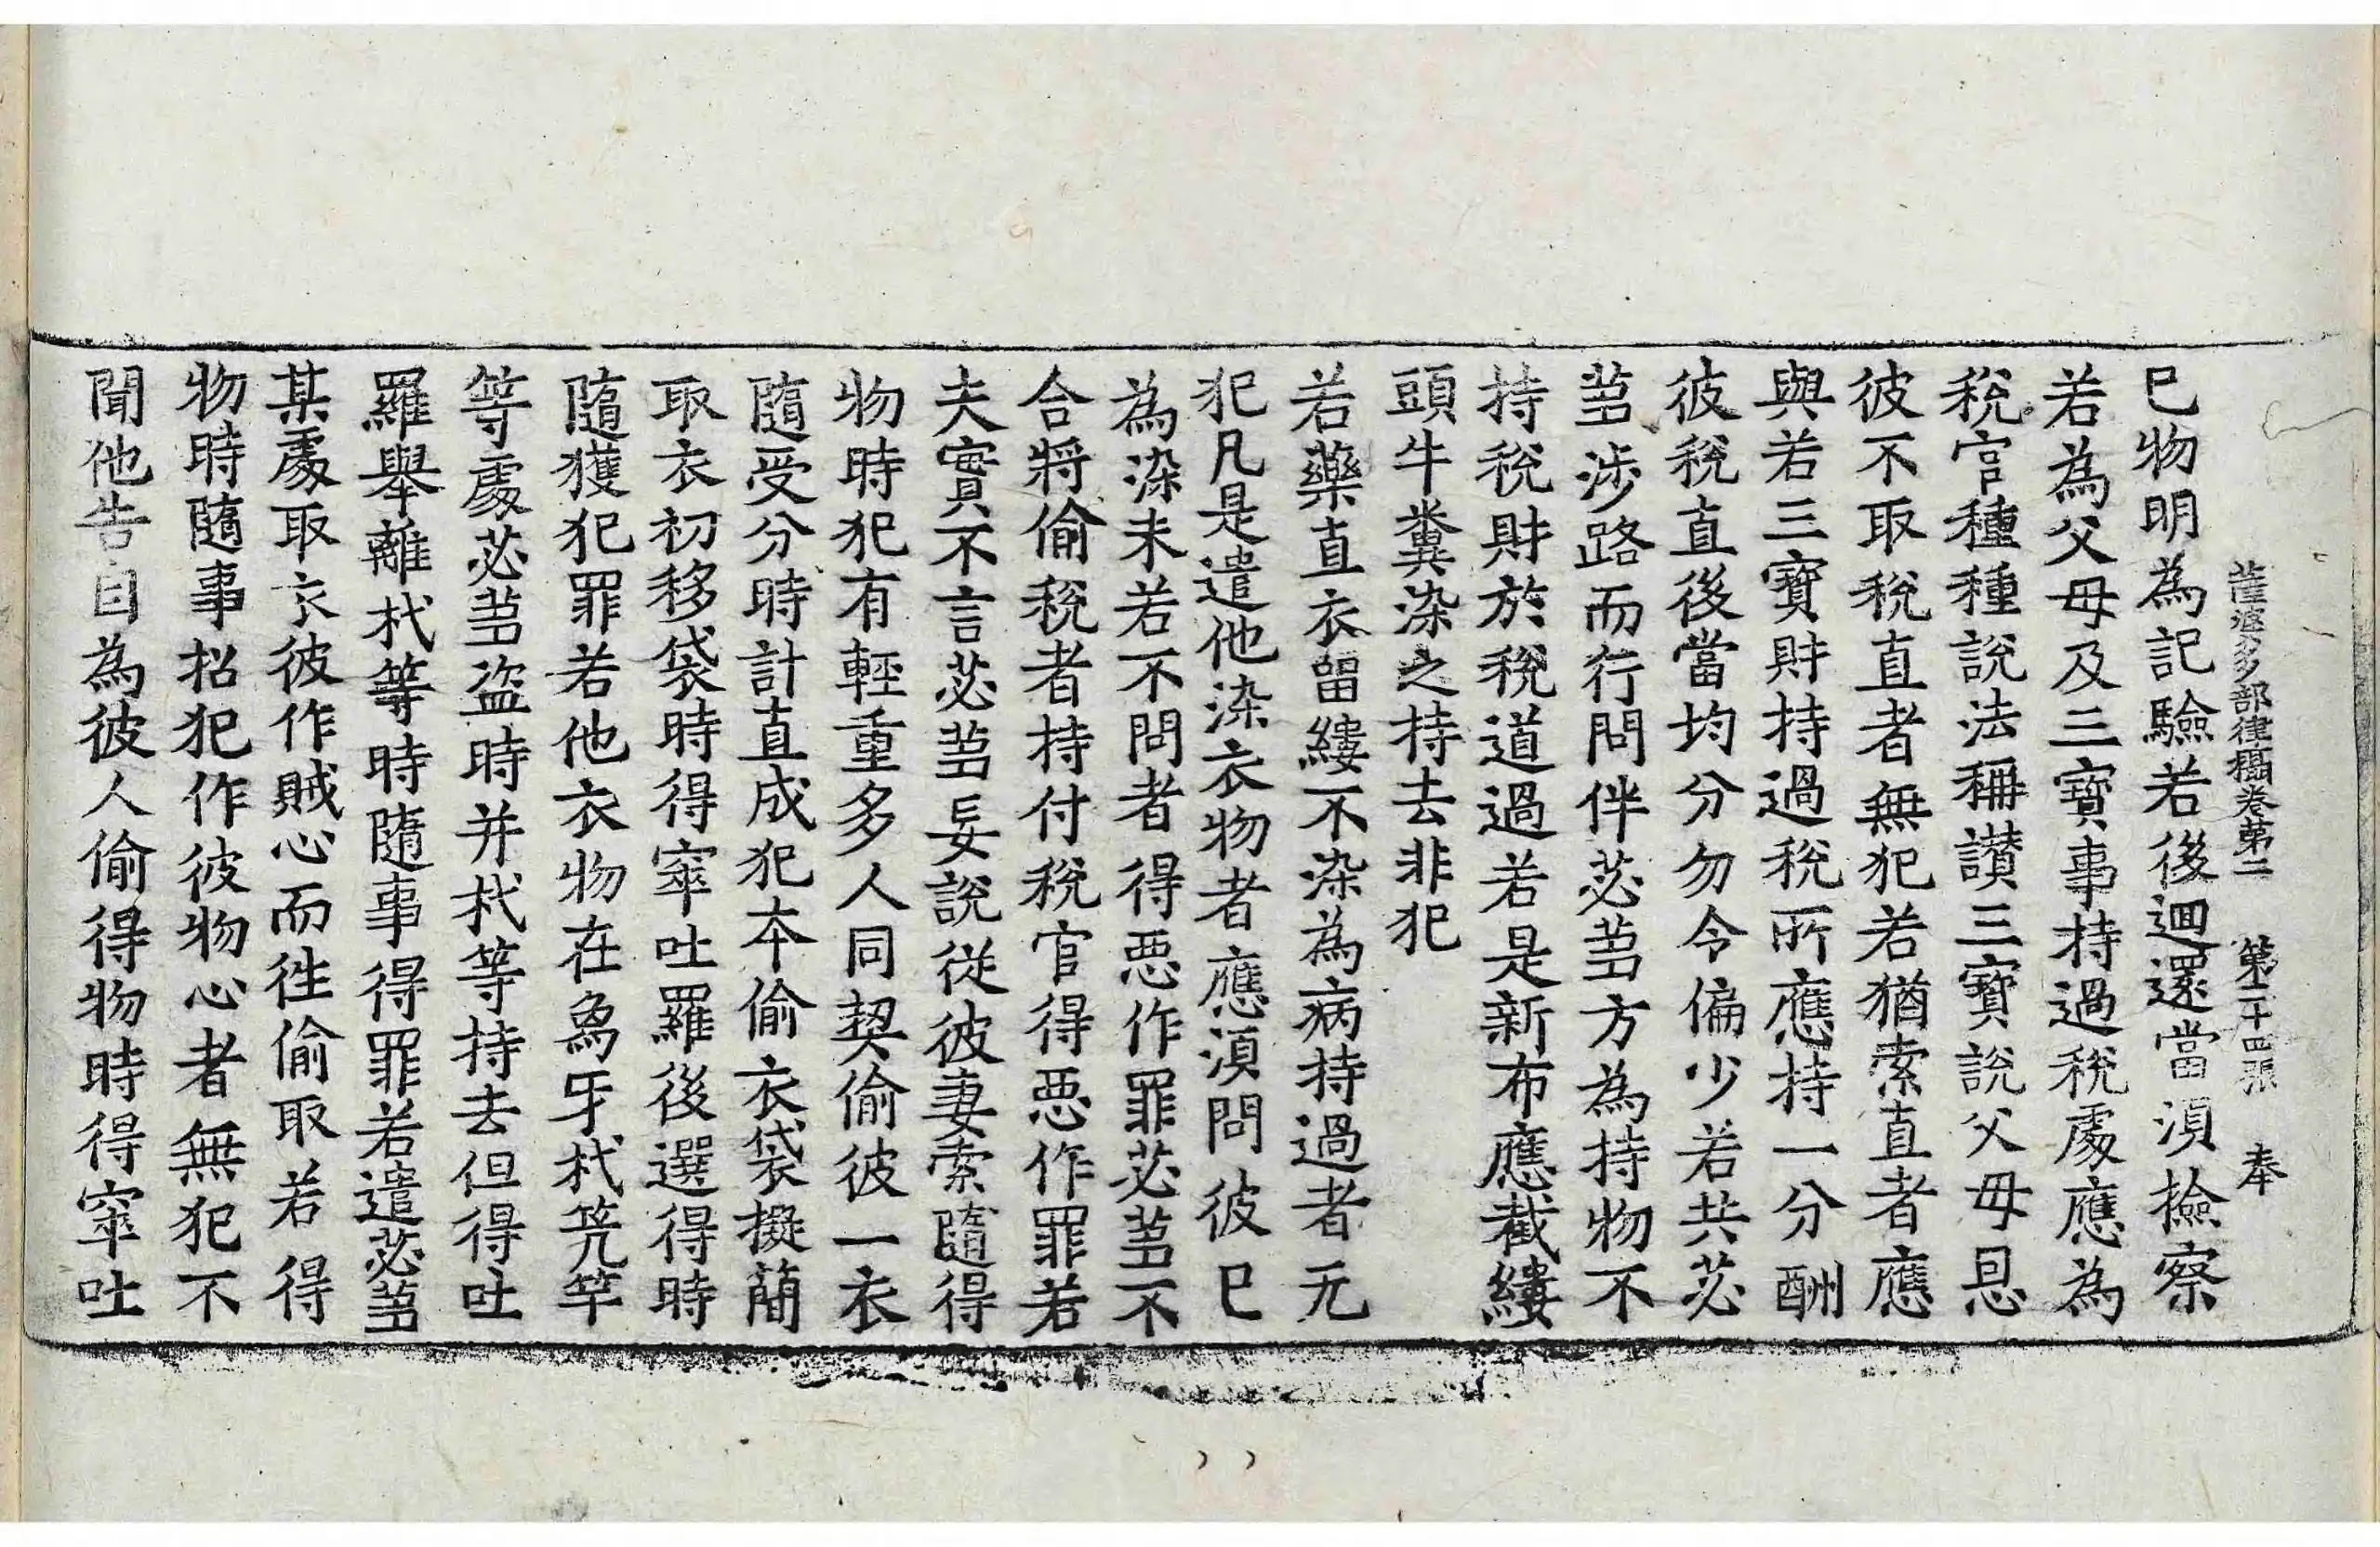 薩婆多部律攝卷第二 第二十四張 奉
已物明為記驗若後迴還當湏撿察
若為父母及三寶事持過稅處應為
稅官種種說法稱讃三寶說父母恩
彼不取稅直者無犯若猶索直者應
與若三寶財持過稅所應持一分酬
彼稅直後當均分勿令偏少若共苾
蒭涉路而行問伴苾蒭方為持物不
持稅財於稅道過若是新布應截縷
頭牛糞染之持去非犯
若藥直衣留縷不染為病持過者无
犯凡是遣他染衣物者應湏問彼已
為染未若不問者得惡作罪苾蒭不
合將偷稅者持付稅官得惡作罪若
夫實不言苾蒭妄說從彼妻索隨得
物時犯有輕重多人同契偷彼一衣
隨受分時計直成犯本偷衣袋擬蕳
取衣初移袋時得窣吐羅後選得時
隨獲犯罪若他衣物在鳥牙杙笐竿
等處苾蒭盜時并杙等持去但得吐
羅舉離杙等時隨事得罪若遣苾蒭
某處取衣彼作賊心而往偷取若得
物時隨事招犯作彼物心者無犯不
聞他告自為彼人偷得物時得窣吐